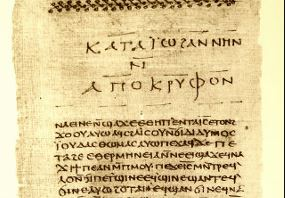 ⲕⲁⲧⲁ ⲓⲱϩⲁⲛⲛⲏⲛ
ⲛ
ⲁⲡⲟⲕⲣⲩⲫⲟⲛ
ⲛⲁⲉⲓ ⲛⲉ ⲛ̄ϣⲁϫⲉ ⲉⲑⲏⲡ ⲉⲛⲧⲁⲓ̅ⲥ̅ ⲉⲧⲟⲛϩ
ϫⲟⲟⲩ ⲁⲩⲱ ⲁϥⲥϩⲁⲓⲥⲟⲩ ⲛ̄ϭⲓ ⲇⲓⲇⲩⲙⲟⲥ
ⲓ̈ⲟⲩⲇⲁⲥ ⲑⲱⲙⲁⲥ ⲁⲩⲱ ⲡⲉϫⲁϥ ϫⲉ ⲡⲉ
ⲧⲁϩⲉ ⲉⲑⲉⲣⲙⲏⲛⲉⲓⲁ ⲛ̄ⲛⲉⲉⲓϣⲁϫⲉ ϥⲛⲁ
ϫⲓ ϯⲡⲉ ⲁⲛ ⲙ̄ⲡⲙⲟⲩ ⲡⲉϫⲉ ⲓ̅ⲥ̅ ⲙⲛ̄ⲧⲣⲉϥ
ⲗⲟ ⲛ̄ϭⲓ ⲡⲉⲧϣⲓⲛⲉ ⲉϥϣⲓⲛⲉ ϣⲁⲛⲧⲉϥ
ϭⲓⲛⲉ ⲁⲩⲱ ϩⲟⲧⲁⲛ ⲉϥϣⲁⲛϭⲓⲛⲉ ϥⲛⲁ